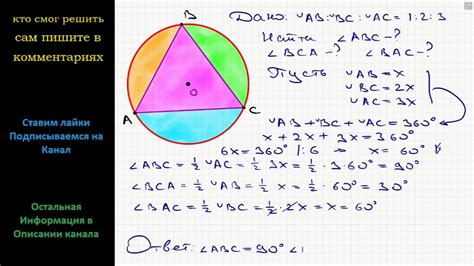 кто смог решить
сам пишите в
комментариях
Ставим лайки
Подписываемся на
Канал
Остальная
Информация в
Описании канала
B
O
A
C
Дано: ◡AB:◡BC:◡AC = 1:2:3
Найти ∠ABC-?
∠BCA-? ∠BAC-?
Пусть ◡AB=x
◡BC=2x
◡AC=3x
◡AB+◡BC+◡AC=360°
x+2x+3x=360°
6x=360° |:6 x=60°
∠ABC=½◡AC=½·3x=½·3·60°=90°
∠BCA=½◡AB=½·x=½·60°=30°
∠BAC=½◡BC=½·2x=x=60°
Ответ: ∠ABC=90° ∠